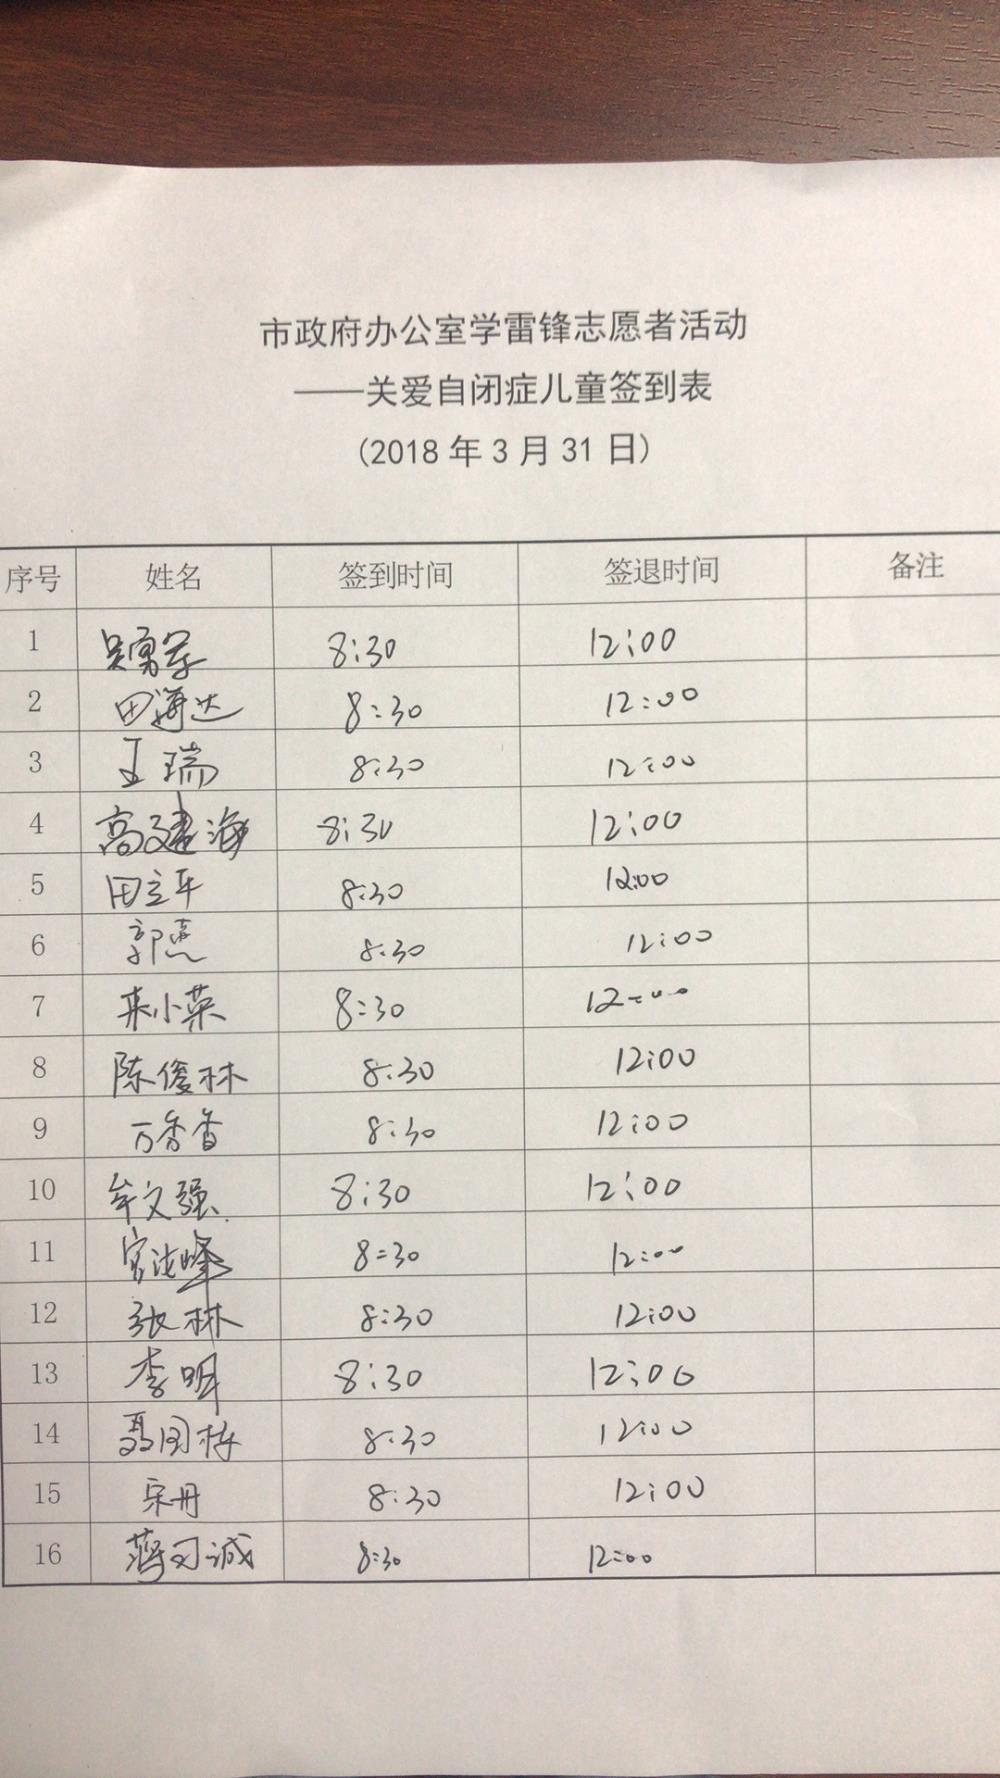 市政府办公室学雷锋志愿者活动
——关爱自闭症儿童签到表
(2018年3月31日)
序号 姓名 签到时间 签退时间 备注
1 吴勇军 8:30 12:00
2 田海达 8:30 12:00
3 王瑞 8:30 12:00
4 高建海 8:30 12:00
5 田立平 8:30 12:00
6 郭惠 8:30 12:00
7 来小荣 8:30 12:00
8 陈俊林 8:30 12:00
9 万香香 8:30 12:00
10 牟文强 8:30 12:00
11 8:30 12:00
12 张林 8:30 12:00
13 李明 8:30 12:00
14 聂国栋 8:30 12:00
15 宋丹 8:30 12:00
16 8:30 12:00